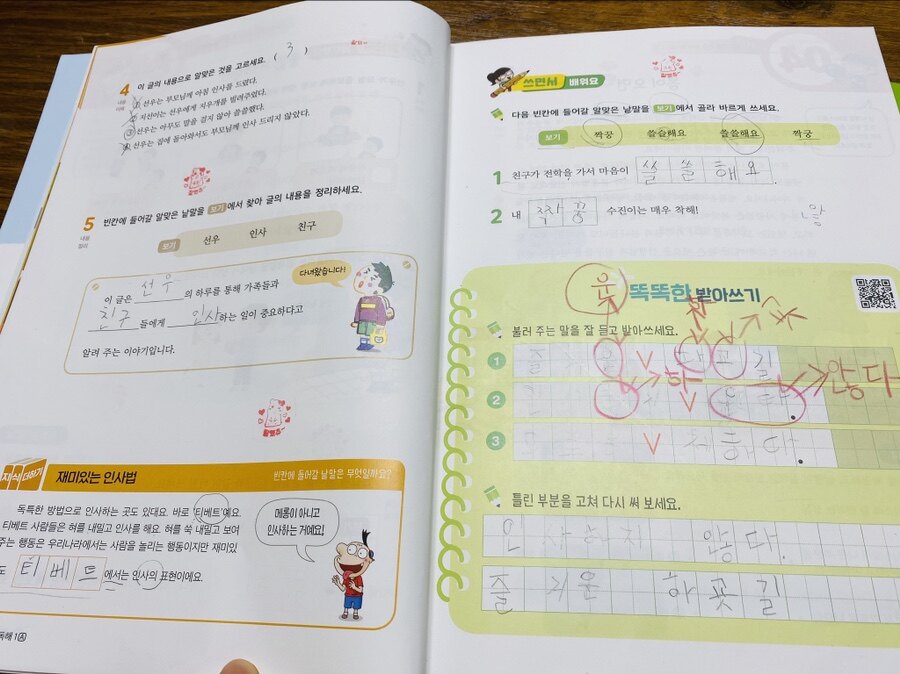 4 이 글의 내용으로 알맞은 것을 고르세요. ( 3 )
내용 이해
① 선우는 부모님께 아침 인사를 드렸다.
② 지선이는 선우에게 지우개를 빌려주었다.
③ 선우는 아무도 말을 걸지 않아 쓸쓸했다.
④ 선우는 집에 돌아와서도 부모님께 인사 드리지 않았다.
5 빈칸에 들어갈 알맞은 낱말을 보기 에서 찾아 글의 내용을 정리하세요.
내용 정리
보기 선우 인사 친구
다녀왔습니다!
이 글은 선우 의 하루를 통해 가족들과
친구 들에게 인사 하는 일이 중요하다고
알려 주는 이야기입니다.
지식 더하기 재미있는 인사법 빈칸에 들어갈 낱말은 무엇일까요?
독특한 방법으로 인사하는 곳도 있대요. 바로 '티베트'예요.
티베트 사람들은 혀를 내밀고 인사를 해요. 혀를 쑥 내밀고 보여
주는 행동은 우리나라에서는 사람을 놀리는 행동이지만 재미있
도 티베트 에서는 인사의 표현이에요.
메롱이 아니고
인사하는 거예요!
독해 1Ⓐ
쓰면서 배워요
다음 빈칸에 들어갈 알맞은 낱말을 보기 에서 골라 바르게 쓰세요.
보기 짝꿍 쓸슬해요 쓸쓸해요 짝궁
1 친구가 전학을 가서 마음이 쓸쓸해요
2 내 짝꿍 수진이는 매우 착해!
운 똑똑한 받아쓰기
불러 주는 말을 잘 듣고 받아쓰세요.
1 즐 길
2 않다
3 하다.
틀린 부분을 고쳐 다시 써 보세요.
않다
즐거운 하굣길